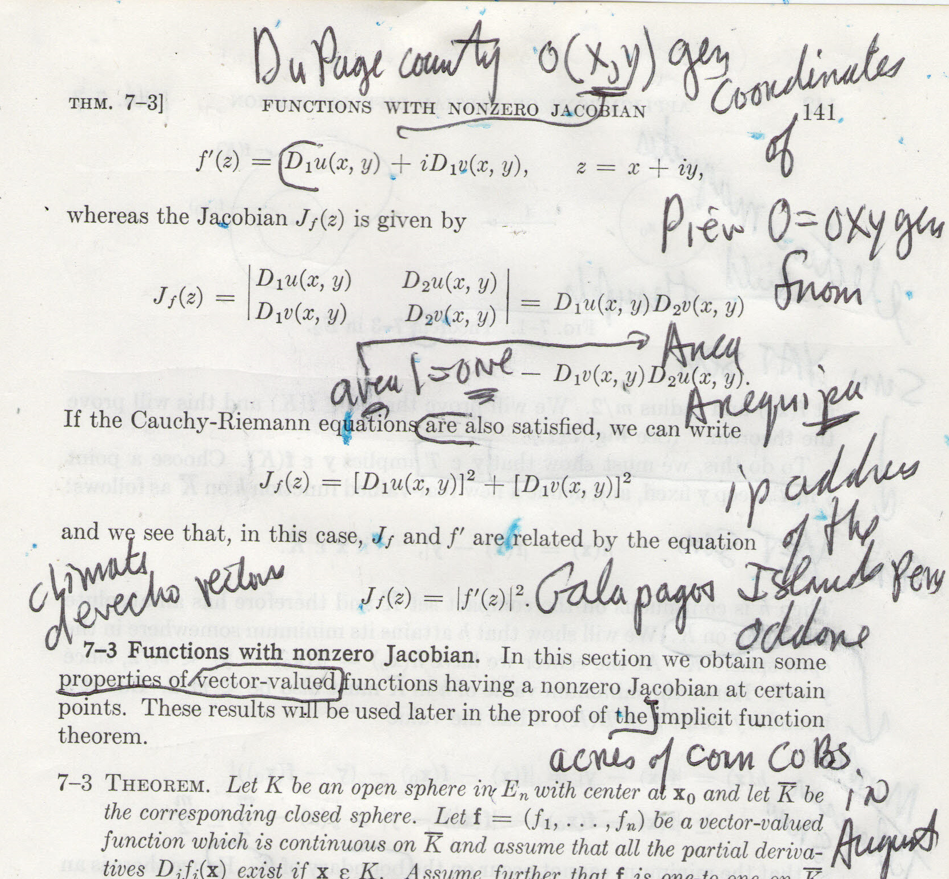 Du Page county O(x,y) gen
Coordinates
of
THM. 7–3] FUNCTIONS WITH NONZERO JACOBIAN 141
f′(z) = D₁u(x, y) + iD₁v(x, y), z = x + iy,
whereas the Jacobian J_f(z) is given by
O = oxygen
from
J_f(z) = | D₁u(x, y) D₂u(x, y) | = D₁u(x, y)D₂v(x, y)
| D₁v(x, y) D₂v(x, y) |
Area
area = one − D₁v(x, y)D₂u(x, y).
Arequipa
If the Cauchy-Riemann equations are also satisfied, we can write
J_f(z) = [D₁u(x, y)]² + [D₁v(x, y)]²
ip address
and we see that, in this case, J_f and f′ are related by the equation
of the
climate
derecho vectors
J_f(z) = |f′(z)|².
Galapagos Islands
7–3 Functions with nonzero Jacobian. In this section we obtain some
properties of vector-valued functions having a nonzero Jacobian at certain
points. These results will be used later in the proof of the implicit function
theorem.
acres of corn COBS
in
August
7–3 THEOREM. Let K be an open sphere in Eₙ with center at x₀ and let K̅ be
the corresponding closed sphere. Let f = (f₁, . . . , fₙ) be a vector-valued
function which is continuous on K̅ and assume that all the partial deriva-
tives Dⱼfᵢ(x) exist if x ε K. Assume further that f is one-to-one on K̅